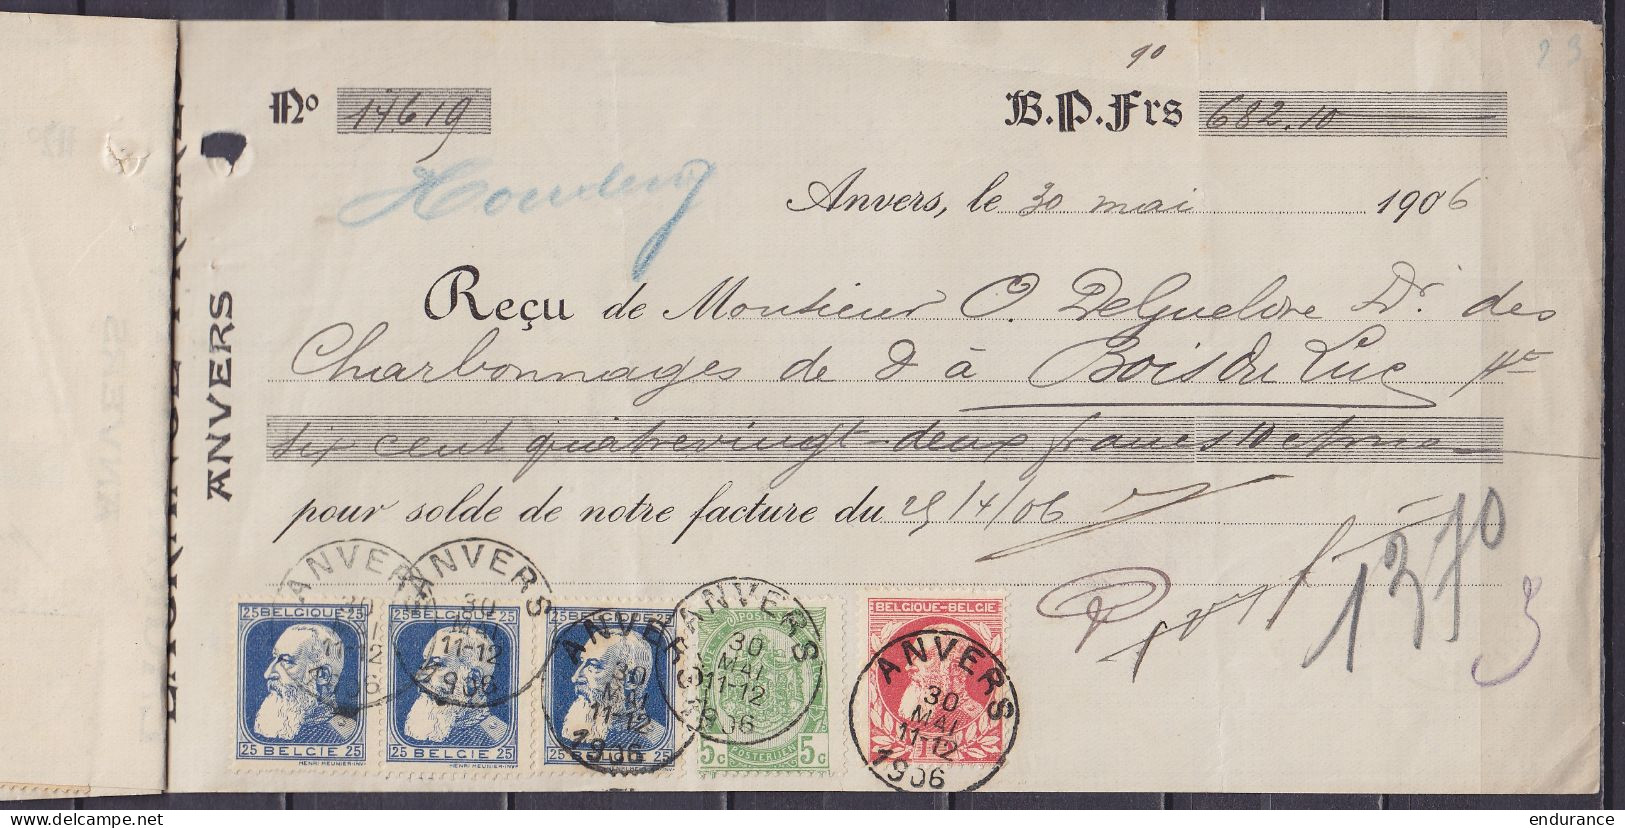 90
23
No 17619 B.P. Frs 682.10
Houdeng
Anvers, le 30 mai 1906
Reçu de Monsieur O. Delgueldre Dr. des
Charbonnages de & à Bois du Luc
six cent quatrevingt-deux francs 10 ctms
pour solde de notre facture du 25/4/06
ANVERS
1370
3
25 BELGIQUE 25
25 BELGIE 25
HENRI MEUNIER-INV
25 BELGIE 25
HENRI MEUNIER-INV
25 BELGIE 25
5c POSTERIJEN 5c
BELGIQUE-BELGIE
ANVERS
30
MAI
11-12
1906
ANVERS
30
MAI
11-12
1906
ANVERS
30
MAI
11-12
1906
ANVERS
30
MAI
11-12
1906
ANVERS
30
MAI
11-12
1906
delcampe.net
endurance